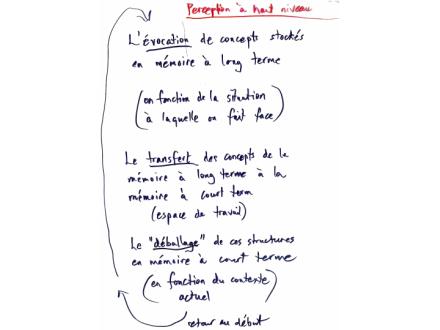 Perception à haut niveau
L'évocation de concepts stockés
en mémoire à long terme
(en fonction de la situation
à laquelle on fait face)
Le transfert des concepts de la
mémoire à long terme à la
mémoire à court term
(espace de travail)
Le "déballage" de ces structures
en mémoire à court terme
(en fonction du contexte
actuel)
retour au début